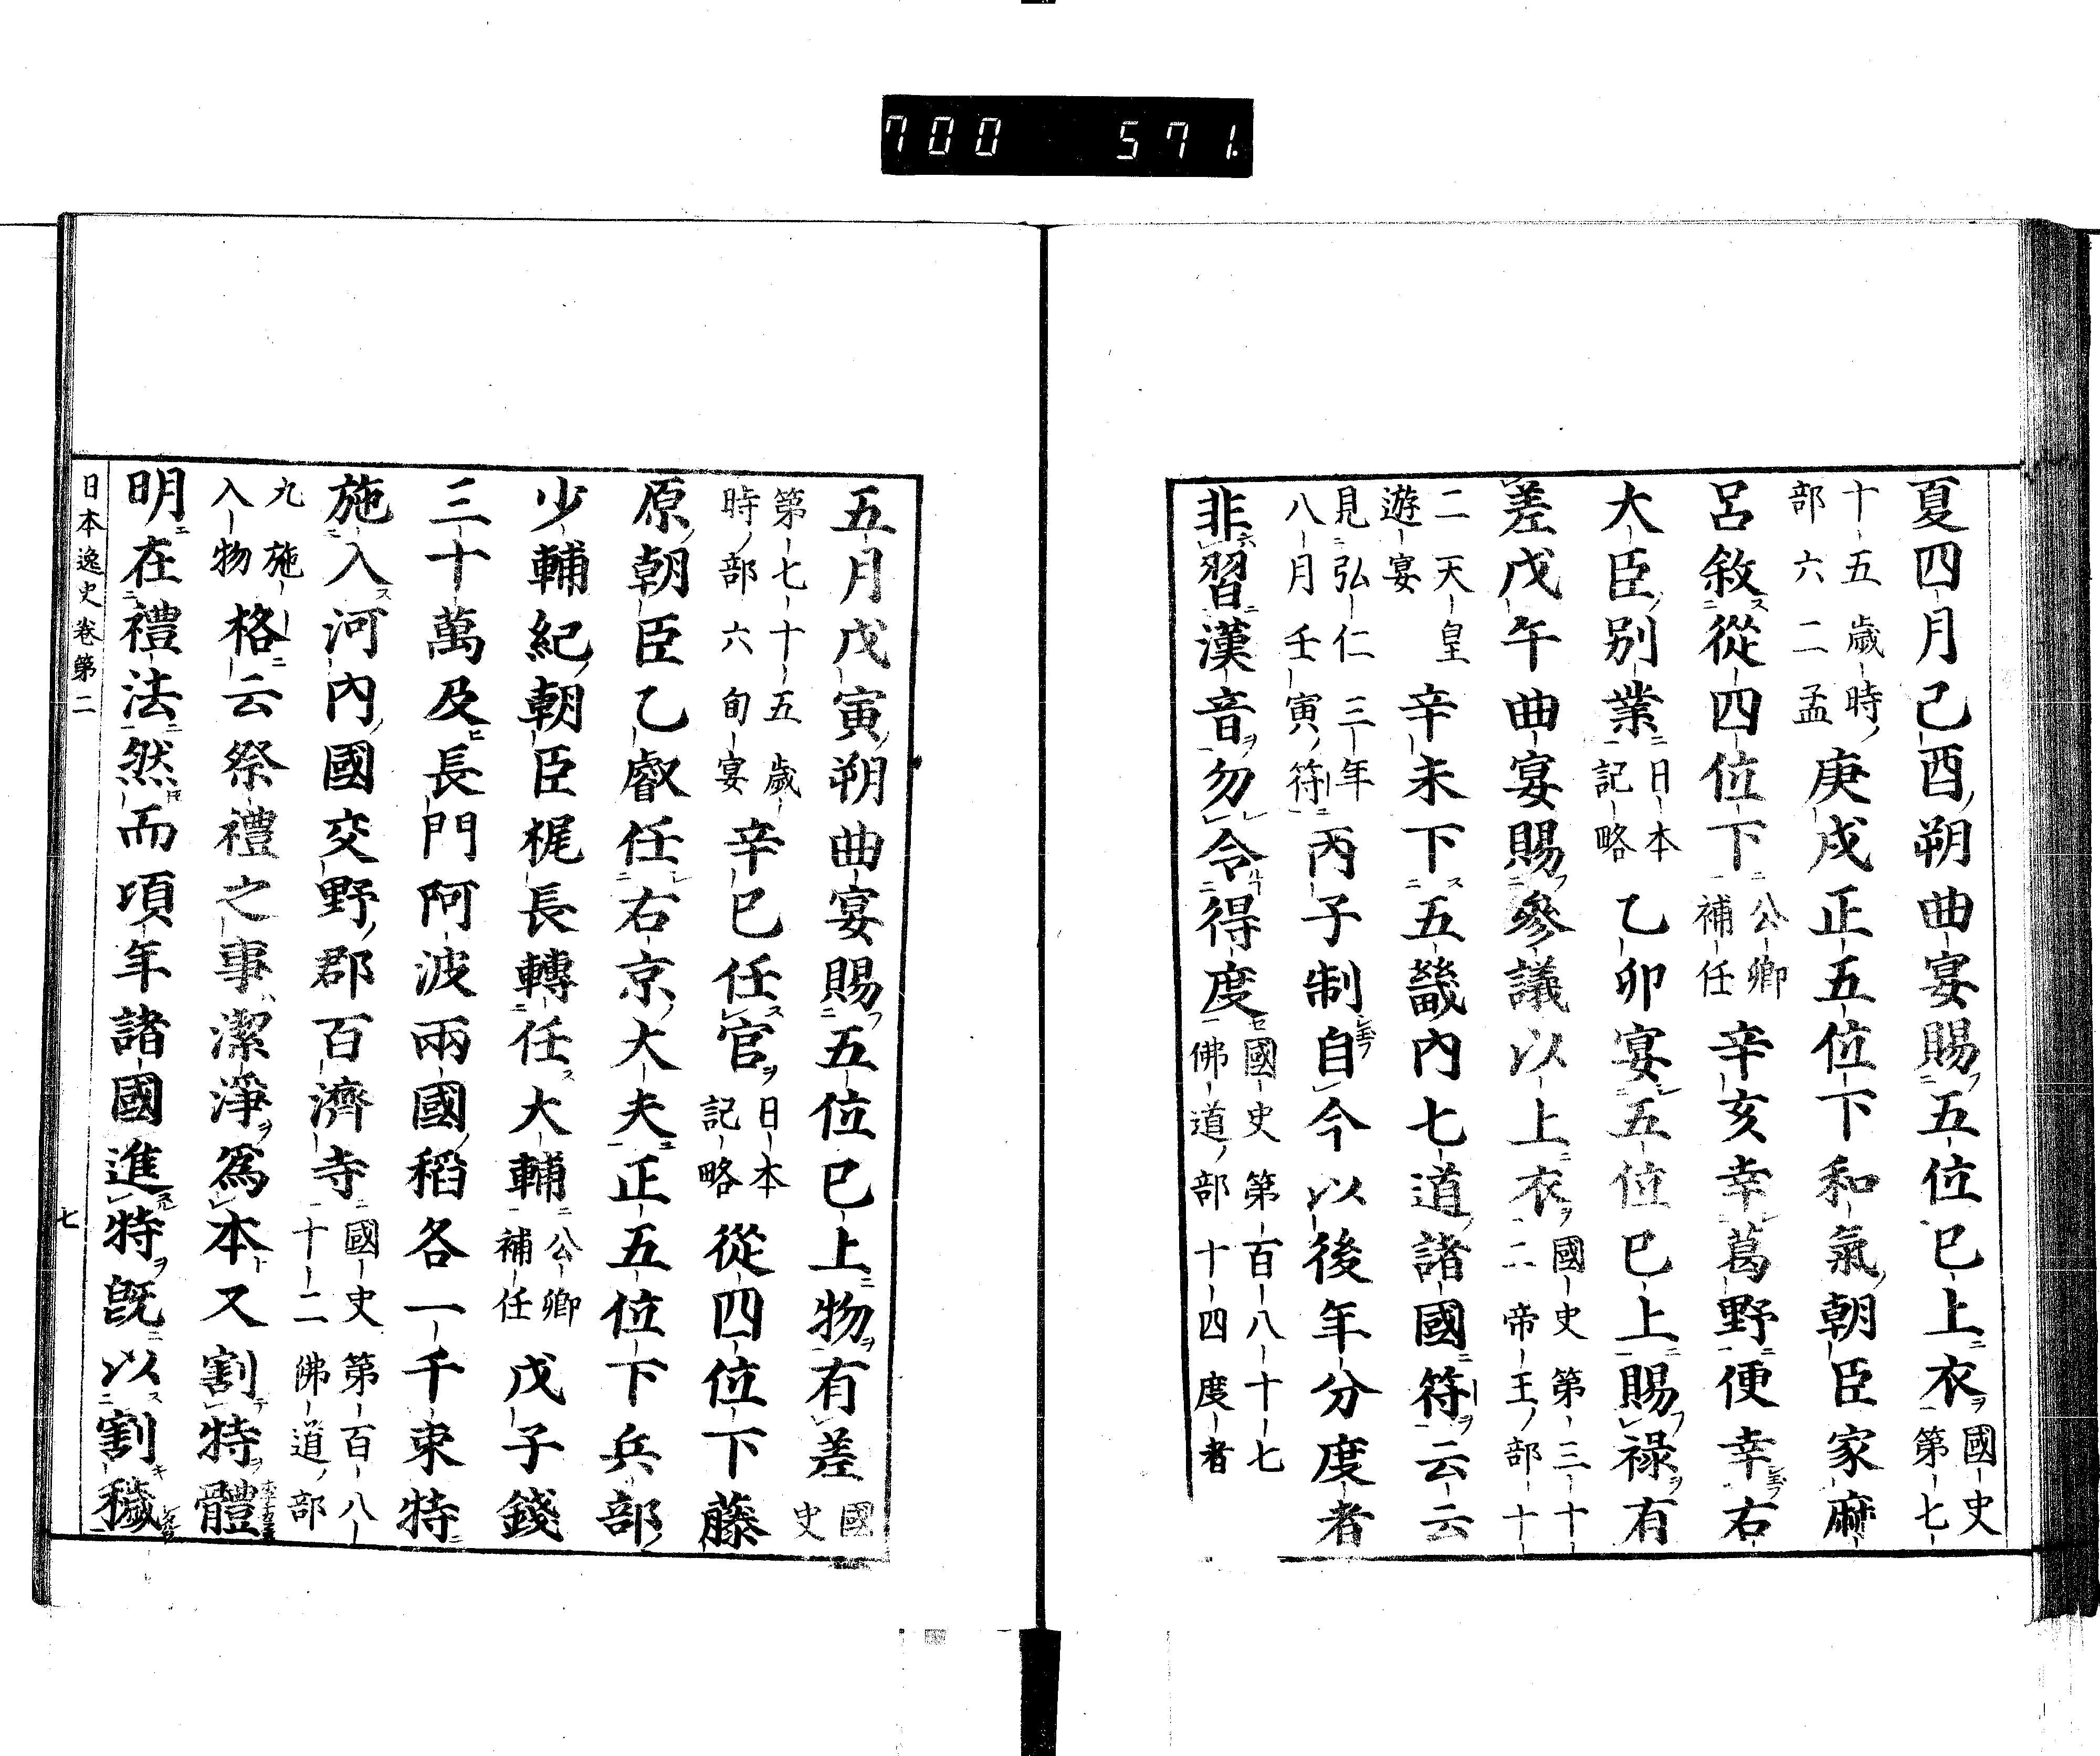 700 571.
夏四月己酉朔曲宴賜五位已上衣國史第七
十五歲時部六二孟庚戌正五位下和氣朝臣家麻
呂敘從四位下公卿補任辛亥幸葛野便幸右
大臣別業日本記略乙卯宴五位已上賜祿有
差戊午曲宴賜參議以上衣國史第三十二帝王部十
二天皇遊宴辛未下五畿內七道諸國符云云
見弘仁三年八月壬寅符丙子制自今以後年分度者
非習漢音勿令得度國史第百八十七佛道部十四度者
五月戊寅朔曲宴賜五位已上物有差國史
第七十五歲時部六旬宴辛巳任官日本記略從四位下藤
原朝臣乙叡任右京大夫正五位下兵部
少輔紀朝臣梶長轉任大輔公卿補任戊子錢
三十萬及長門阿波兩國稻各一千束特
施入河內國交野郡百濟寺國史第百八十二佛道部
九施入物格云祭禮之事潔淨爲本又割特體
明在禮法然而項年諸國進特旣以割穢
日本逸史卷第二 七